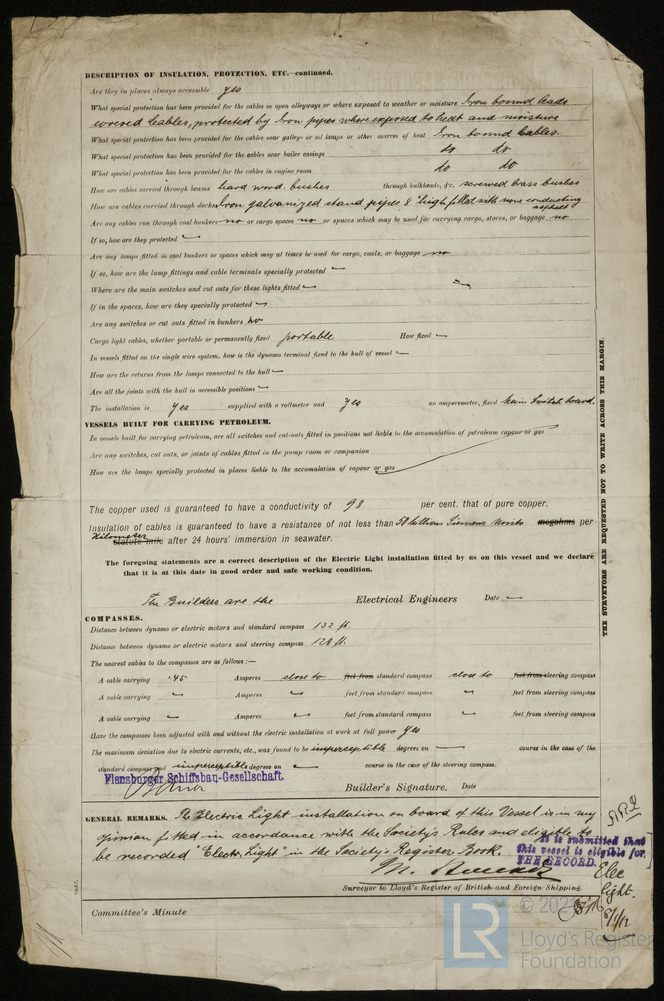 DESCRIPTION OF INSULATION, PROTECTION, ETC.—continued.
Are they in places always accessible yes
What special protection has been provided for the cables in open alleyways or where exposed to weather or moisture Iron bound leads
covered Cables, protected by Iron pipes where exposed to heat and moisture
What special protection has been provided for the cables near galleys or oil lamps or other sources of heat Iron bound Cables.
What special protection has been provided for the cables near boiler casings do do
What special protection has been provided for the cables in engine room do do
How are cables carried through beams hard wood bushes through bulkheads, &c. screwed brass bushes
How are cables carried through decks Iron galvanized stand pipes 8" high filled with non conducting
asphalt
Are any cables run through coal bunkers no or cargo spaces no or spaces which may be used for carrying cargo, stores, or baggage no
If so, how are they protected —
Are any lamps fitted in coal bunkers or spaces which may at times be used for cargo, coals, or baggage no
If so, how are the lamp fittings and cable terminals specially protected —
Where are the main switches and cut outs for these lights fitted —
If in the spaces, how are they specially protected —
Are any switches or cut outs fitted in bunkers no
Cargo light cables, whether portable or permanently fixed portable How fixed —
In vessels fitted on the single wire system, how is the dynamo terminal fixed to the hull of vessel —
How are the returns from the lamps connected to the hull —
Are all the joints with the hull in accessible positions —
The installation is yes supplied with a voltmeter and yes an amperemeter, fixed Main Switch board.
VESSELS BUILT FOR CARRYING PETROLEUM.
In vessels built for carrying petroleum, are all switches and cut-outs fitted in positions not liable to the accumulation of petroleum vapour or gas
Are any switches, cut outs, or joints of cables fitted in the pump room or companion
How are the lamps specially protected in places liable to the accumulation of vapour or gas
The copper used is guaranteed to have a conductivity of 98 per cent. that of pure copper.
Insulation of cables is guaranteed to have a resistance of not less than 50 Millions Siemens Units megohms per
Kilometer
statute mile after 24 hours' immersion in seawater.
The foregoing statements are a correct description of the Electric Light installation fitted by us on this vessel and we declare
that it is at this date in good order and safe working condition.
The Builders are the Electrical Engineers Date —
COMPASSES.
Distance between dynamo or electric motors and standard compass 132 ft.
Distance between dynamo or electric motors and steering compass 128 ft.
The nearest cables to the compasses are as follows:—
A cable carrying .45 Amperes close to feet from standard compass close to feet from steering compass
A cable carrying — Amperes — feet from standard compass — feet from steering compass
A cable carrying — Amperes — feet from standard compass — feet from steering compass
Have the compasses been adjusted with and without the electric installation at work at full power yes
The maximum deviation due to electric currents, etc., was found to be imperceptible degrees on — course in the case of the
standard compass and imperceptible degrees on — course in the case of the steering compass.
Flensburger Schiffsbau-Gesellschaft.
Builder's Signature. Date
GENERAL REMARKS. The Electric Light installation on board of this Vessel is in my
opinion fitted in accordance with the Society's Rules and eligible to
be recorded "Electr. Light" in the Society's Register Book.
It is submitted that
this vessel is eligible for
THE RECORD.
Elec
light.
Surveyor to Lloyd's Register of British and Foreign Shipping.
Committee's Minute
THE SURVEYORS ARE REQUESTED NOT TO WRITE ACROSS THIS MARGIN.
LR
Lloyd's Register
Foundation